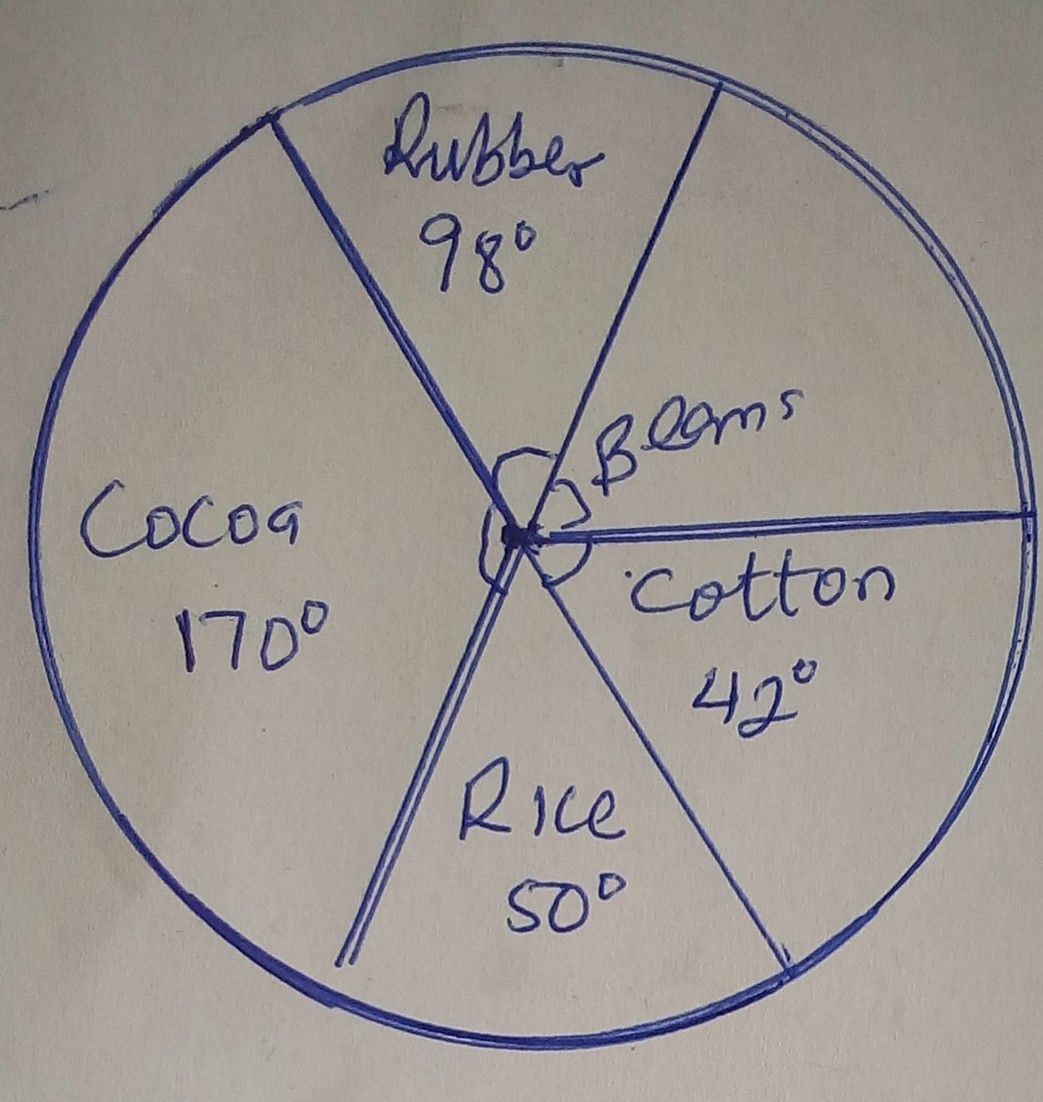 Rubber
98°
Beams
Cocoa
170°
Cotton
42°
Rice
50°